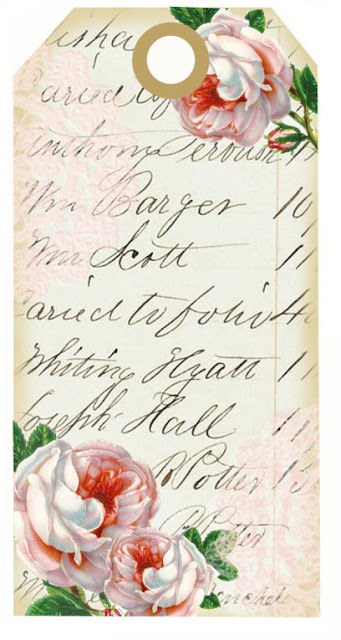 isha
aried to fo
Anthony
Wm Barger 10
Wm Scott 11
Caried to folio 4
Whiting Hyatt 11
Joseph Hall 11
R Potter 13
R Potter